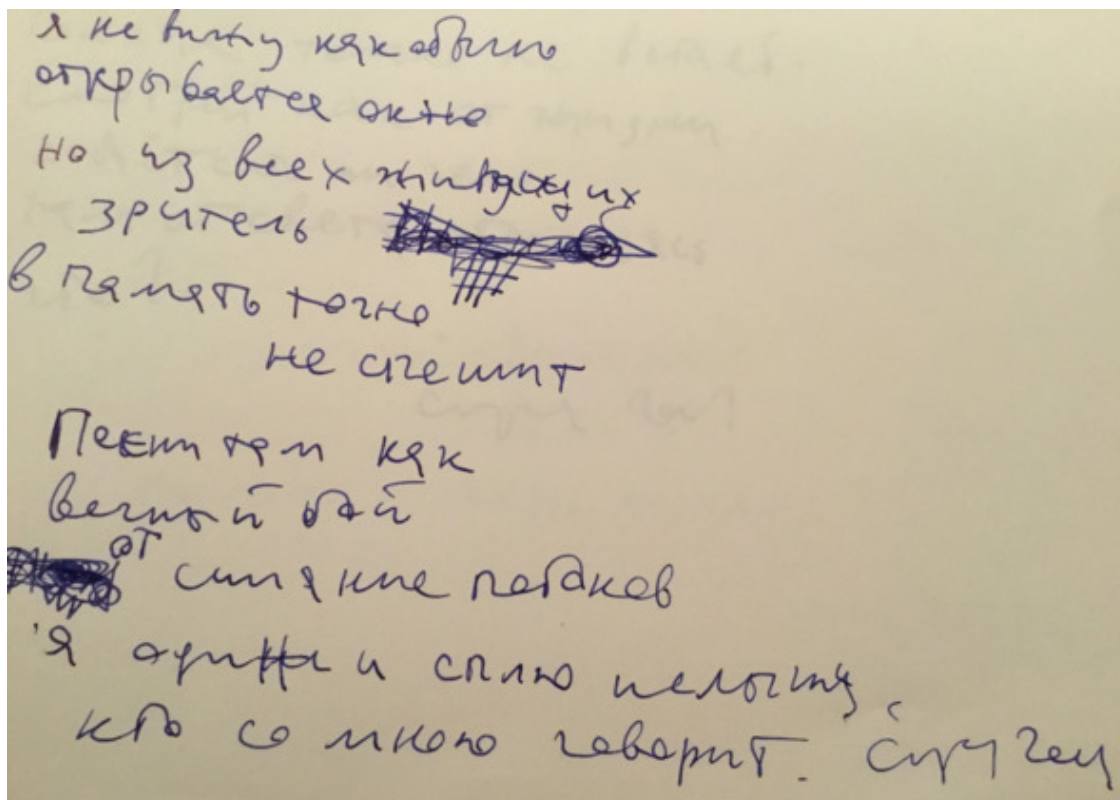 я не вижу как обычно
открывается окно
но из всех живущих
зритель
в память точно
не спешит
Пекин там как
вечный бой
от сияние потоков
Я один и сплю
кто со мною говорит.